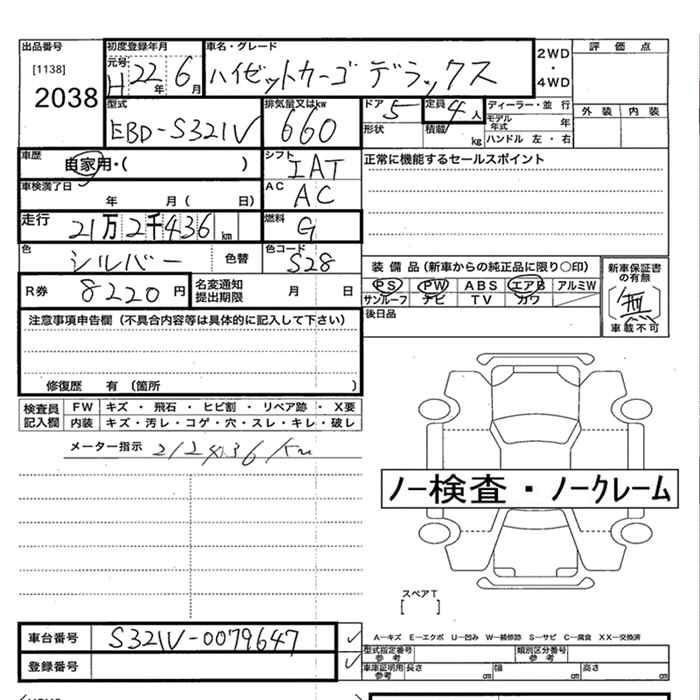 出品番号 初度登録年月 車名・グレード 2WD ・ 4WD 評価点
[1138] 元号 H 22年 6月 ハイゼットカーゴ デラックス
2038 外装 内装
型式 排気量又はkw ドア 5 定員 4人 ディーラー・並行
EBD-S321V 660 形状 積載 kg モデル年式 年
ハンドル 左・右
車歴 自家用・( ) シフト IAT 正常に機能するセールスポイント
車検満了日 年 月( 日) AC AC
走行 21万2千436km 燃料 G
色 シルバー 色替 色コード S28
装備品(新車からの純正品に限り○印) 新車保証書の有無
R券 8220円 名変通知提出期限 月 日 PS PW ABS エアB アルミW 無
サンルーフ ナビ TV カワ 車載不可
注意事項申告欄(不具合内容等は具体的に記入して下さい) 後日品
修復歴 有(箇所 )
検査員記入欄 FW キズ・飛石・ヒビ割・リペア跡・X要
内装 キズ・汚レ・コゲ・穴・スレ・キレ・破レ
メーター指示 212436km
ノー検査・ノークレーム
スペアT
[ ]
車台番号 S321V-0079647 ✓ A―キズ E―エクボ U―凹み W―補修跡 S―サビ C―腐食 XX―交換済
型式指定番号 参考 類別区分番号 参考
登録番号 ✓ 車庫証明用 参考 長さ cm 幅 cm 高さ cm